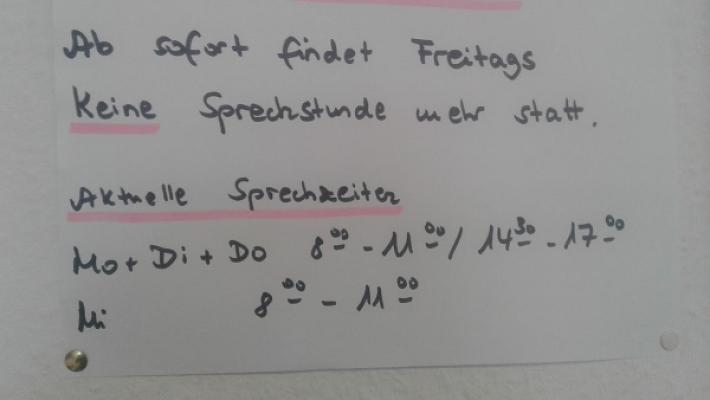 Ab sofort findet Freitags
Keine Sprechstunde mehr statt.
Aktuelle Sprechzeiten
Mo + Di + Do 8⁰⁰ - 11⁰⁰ / 14³⁰ - 17⁰⁰
Mi 8⁰⁰ - 11⁰⁰